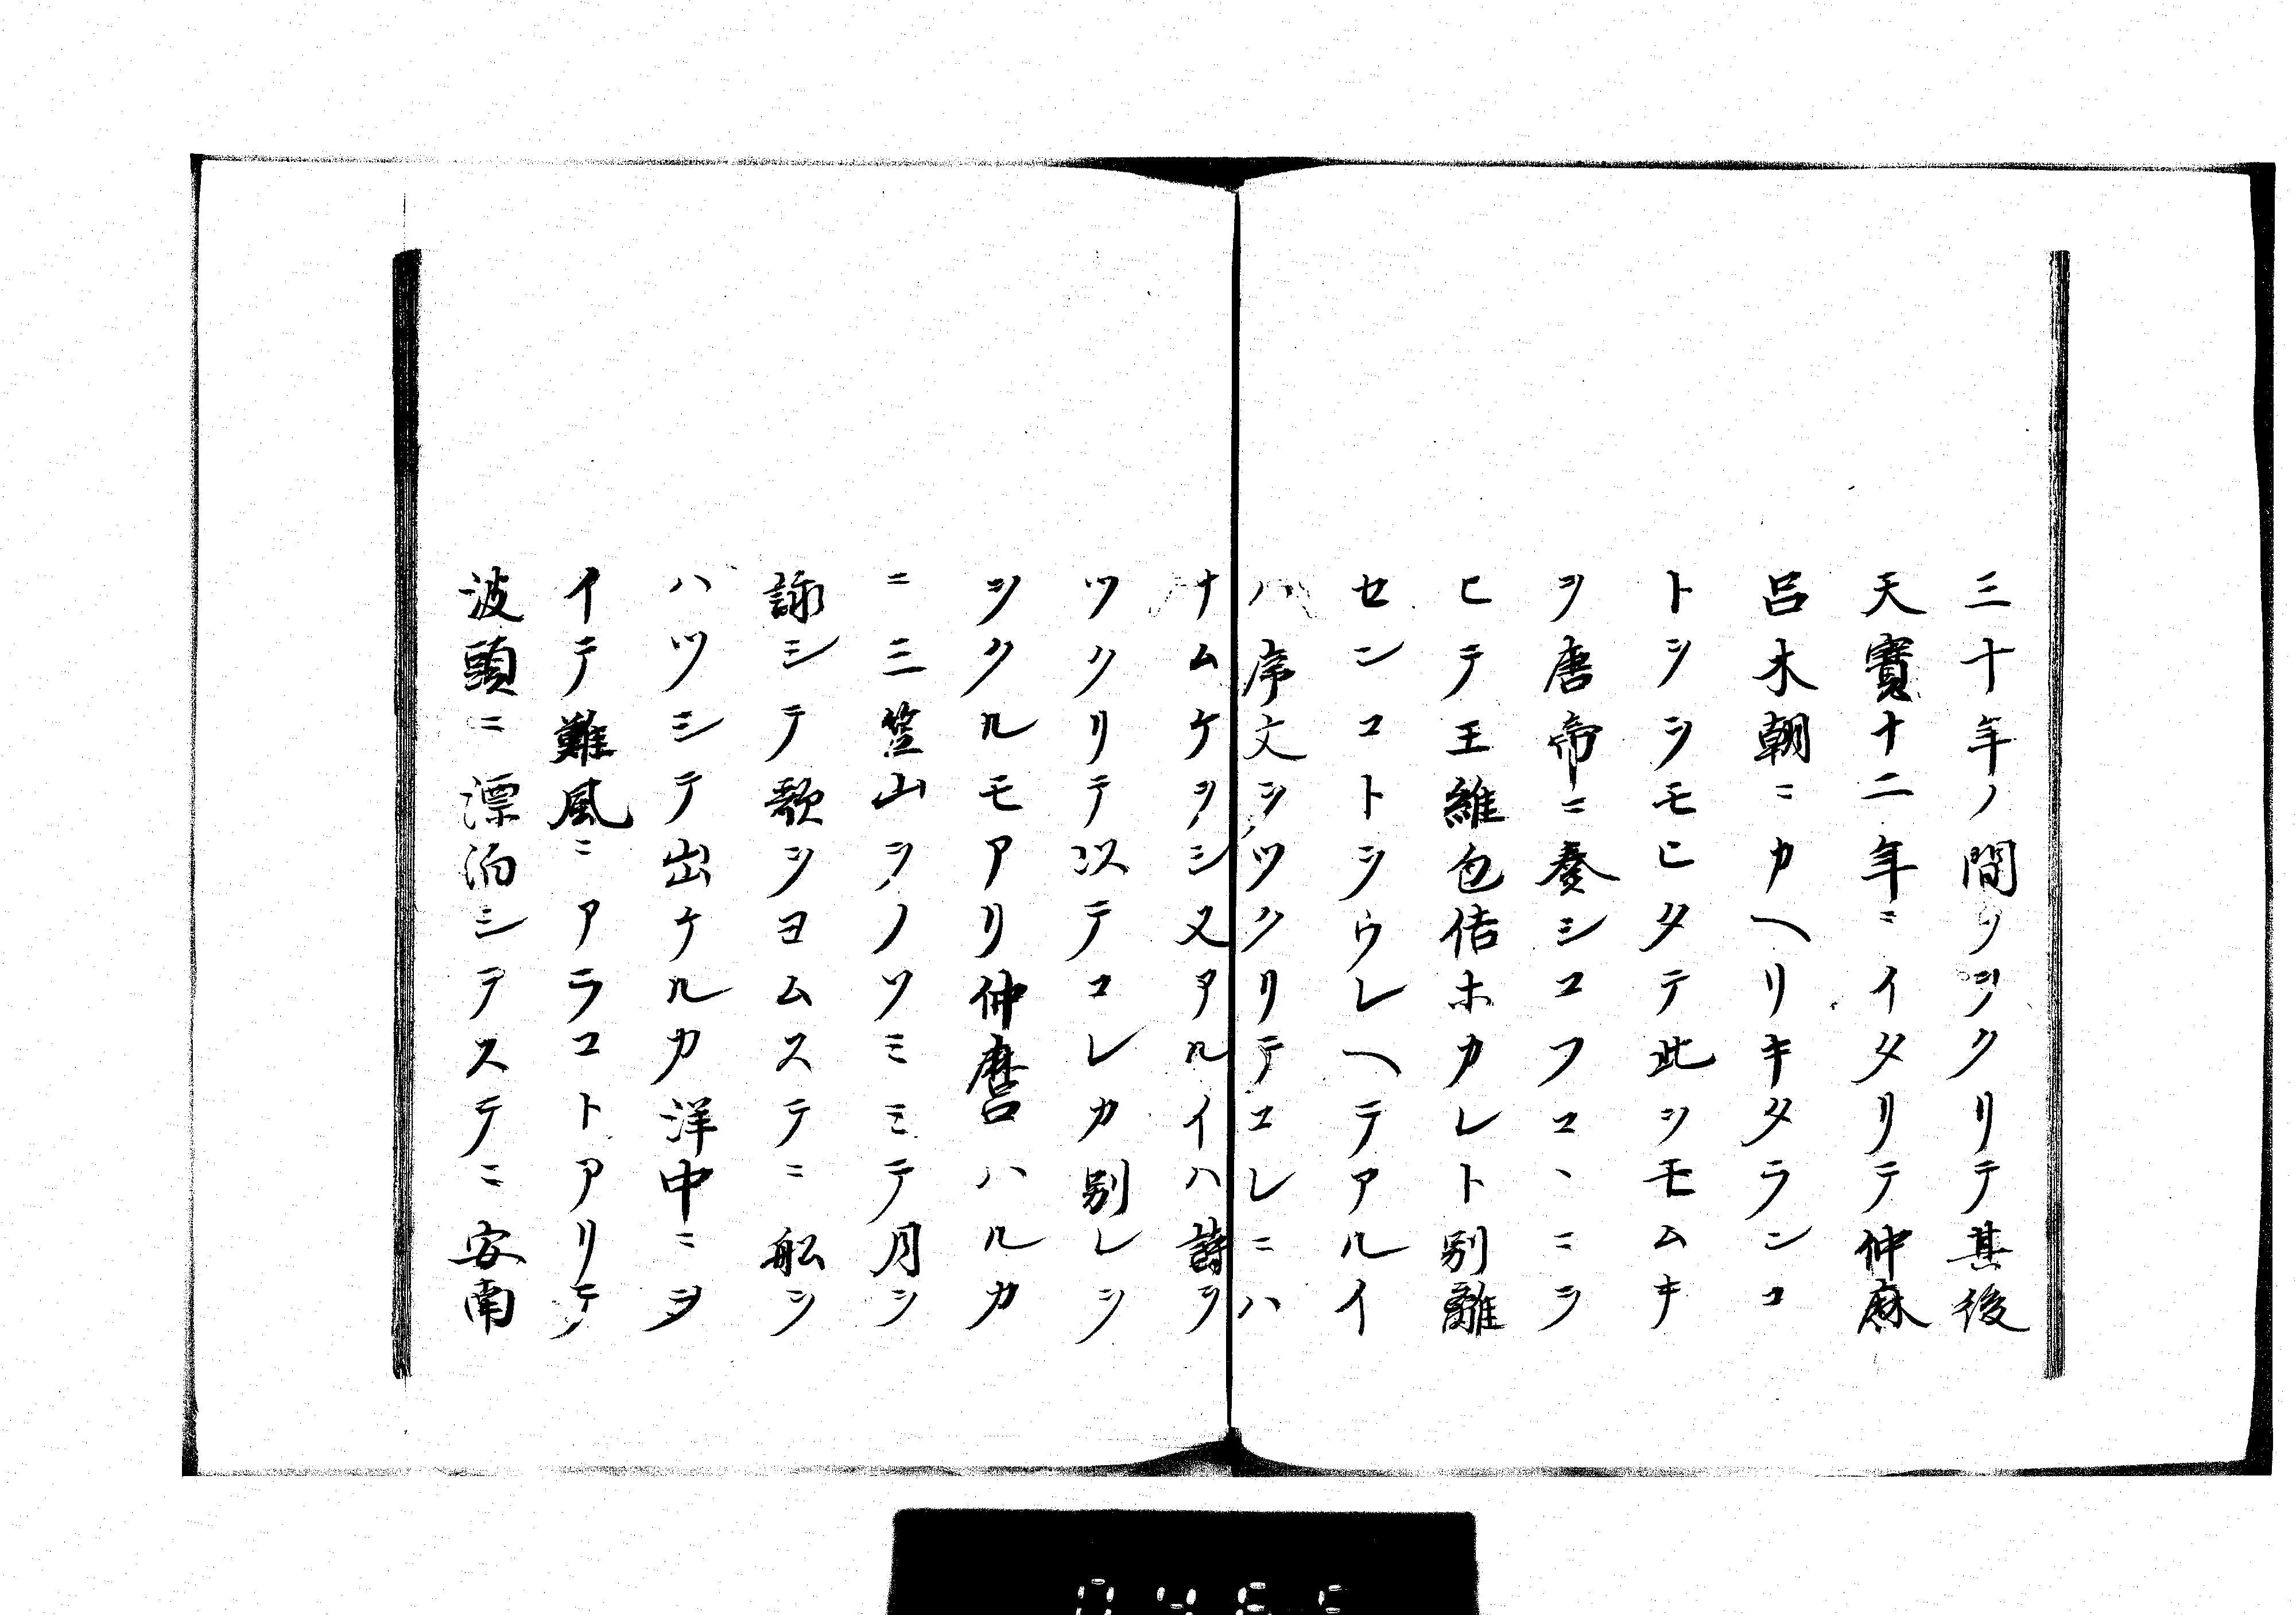 三十年ノ間ヲヲクリテ其後
天寳十二年ニイタリテ仲麻
呂本朝ニカヘリキタランコ
トヲヲモヒタテ此ヲモムキ
ヲ唐帝ニ奏シコフコヽニヲ
ヒテ王維包佶ホカレト別離
センコトヲウレヘテアルイ
ハ序文ヲツクリテコレニハ
ナムケヲシ又アルイハ詩ヲ
ツクリテ以テコレカ別レヲ
ヲクルモアリ仲麿ハルカ
ニ三笠山ヲノソミミテ月ヲ
詠シテ歌ヲヨムステニ舩ヲ
ハツシテ出ケルカ洋中ニヲ
イテ難風ニアラコトアリテ
波頭ニ漂泊シテステニ安南